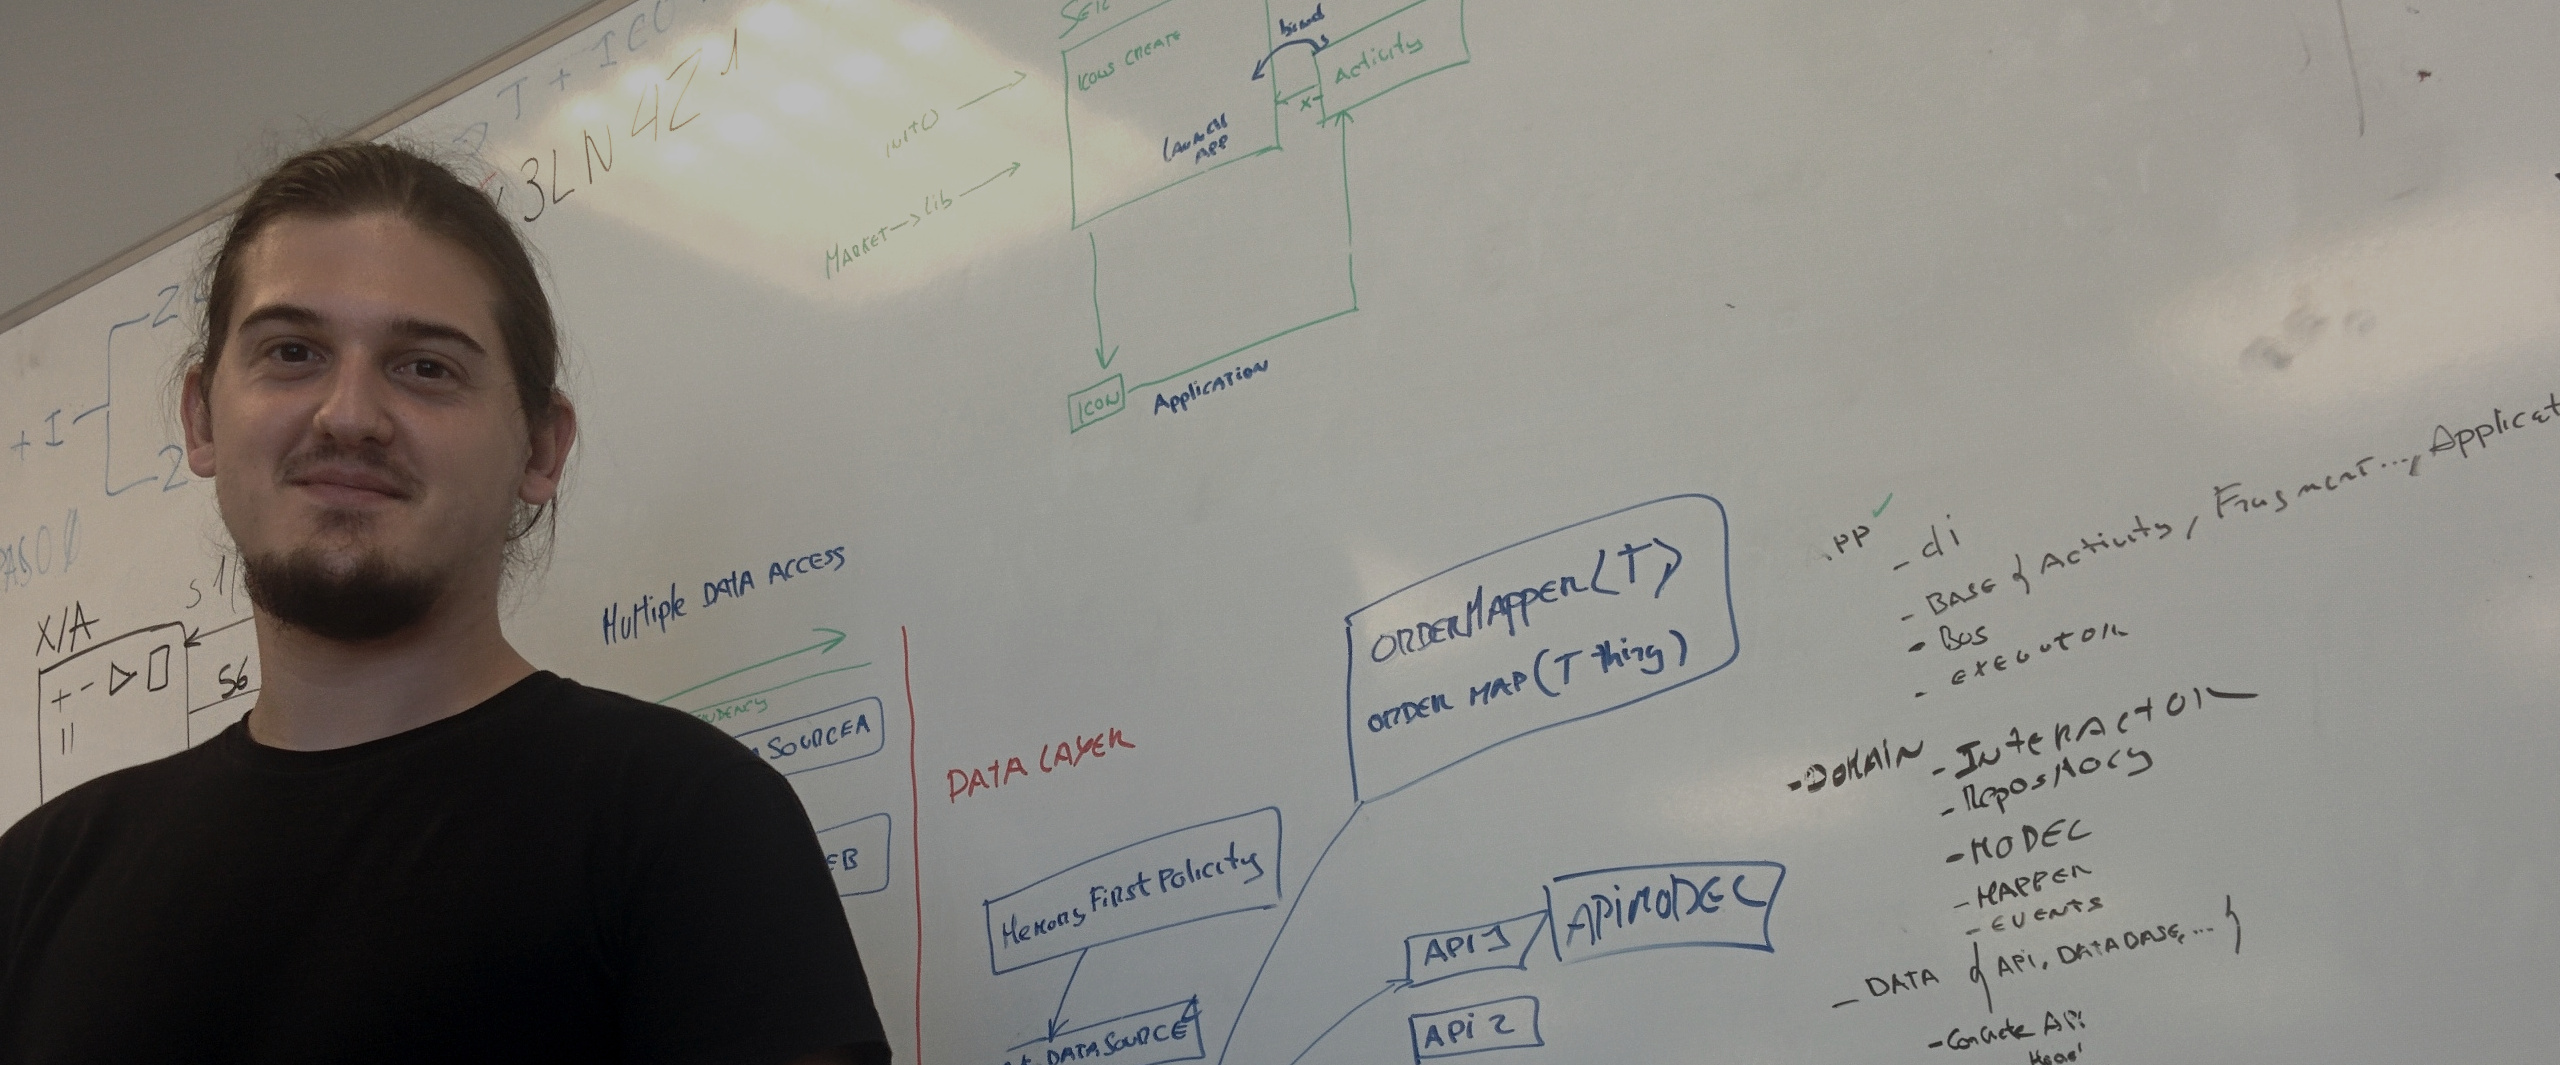 T + I
3LN4Z1
INITO
MARKET -> lib
ICONS CREATE
LAUNCH
APP
bind
Activity
X
ICON
Application
+ I
2
2
PASO 0
X/A
S6
Multiple DATA ACCESS
SOURCEA
EB
DATA LAYER
Memory First Policity
DATASOURCE
ORDERMAPPER(T)
ORDER MAP(T thing)
API 1
APIMODEL
API 2
PP ✓
- di
- BASE { Activity, Fragment..., Applicat
- BUS
- executor
- DOMAIN - INTERACTOR
- Repository
- MODEL
- MAPPER
- EVENTS
- DATA { API, DATABASE, ... }
- Concrete API